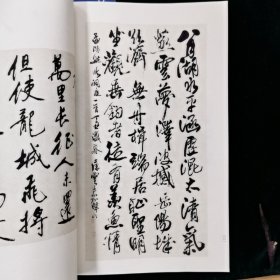 八月湖水平涵虛混太清氣
蒸雲夢澤波撼岳陽城
欲濟無舟楫端居恥聖明
坐觀垂釣者徒有羨魚情
萬里長征人未還
但使龍城飛將